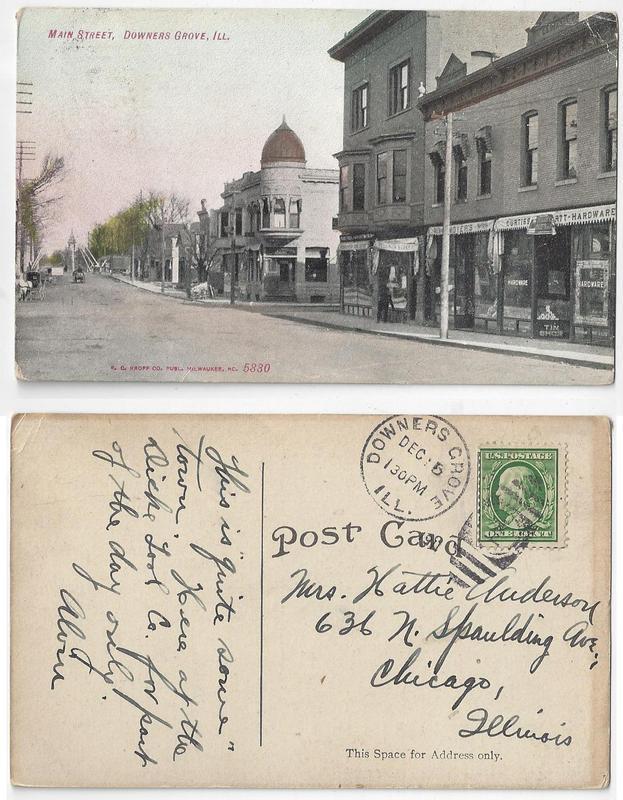 MAIN STREET, DOWNERS GROVE, ILL.
CURTISS
TT-HARDWARE
HARDWARE
HARDWARE
TIN
SHOP
E. C. KROPP CO. PUBL. MILWAUKEE, NO. 5330
DOWNERS GROVE
DEC 15
130PM
ILL.
U.S. POSTAGE
ONE CENT
Post Card
Mrs. Hattie Anderson
636 N. Spaulding Ave.,
Chicago,
Illinois
This Space for Address only.
This is "quite some"
town. Here at the
Dicke Tool Co. for part
of the day only.
Alvin